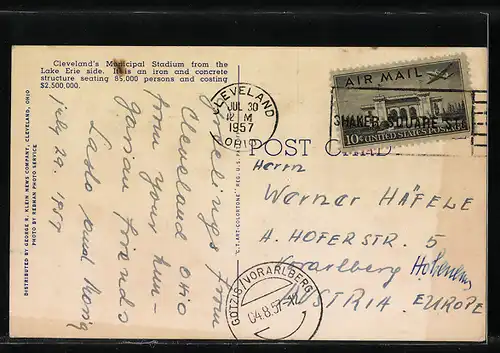 Cleveland's Municipal Stadium from the
Lake Erie side. It is an iron and concrete
structure seating 85,000 persons and costing
$2,500,000.
CLEVELAND
JUL 30
12 M
1957
OHIO
AIR MAIL
SHAKER SQUARE STA.
10¢ UNITED STATES POSTAGE
POST CARD
Herrn
Werner HÄFELE
A. HOFERSTR. 5
Vorarlberg Hohenems
AUSTRIA. EUROPE
GÖTZIS/VORARLBERG
04.8.57
Greetings from
Cleveland Ohio
from your Hun-
garian friends
Laslo and
July 29. 1957
DISTRIBUTED BY GEORGE R. KLEIN NEWS COMPANY, CLEVELAND, OHIO
PHOTO BY REBMAN PHOTO SERVICE
C.T. ART-COLORTONE REG. U.S. PAT.